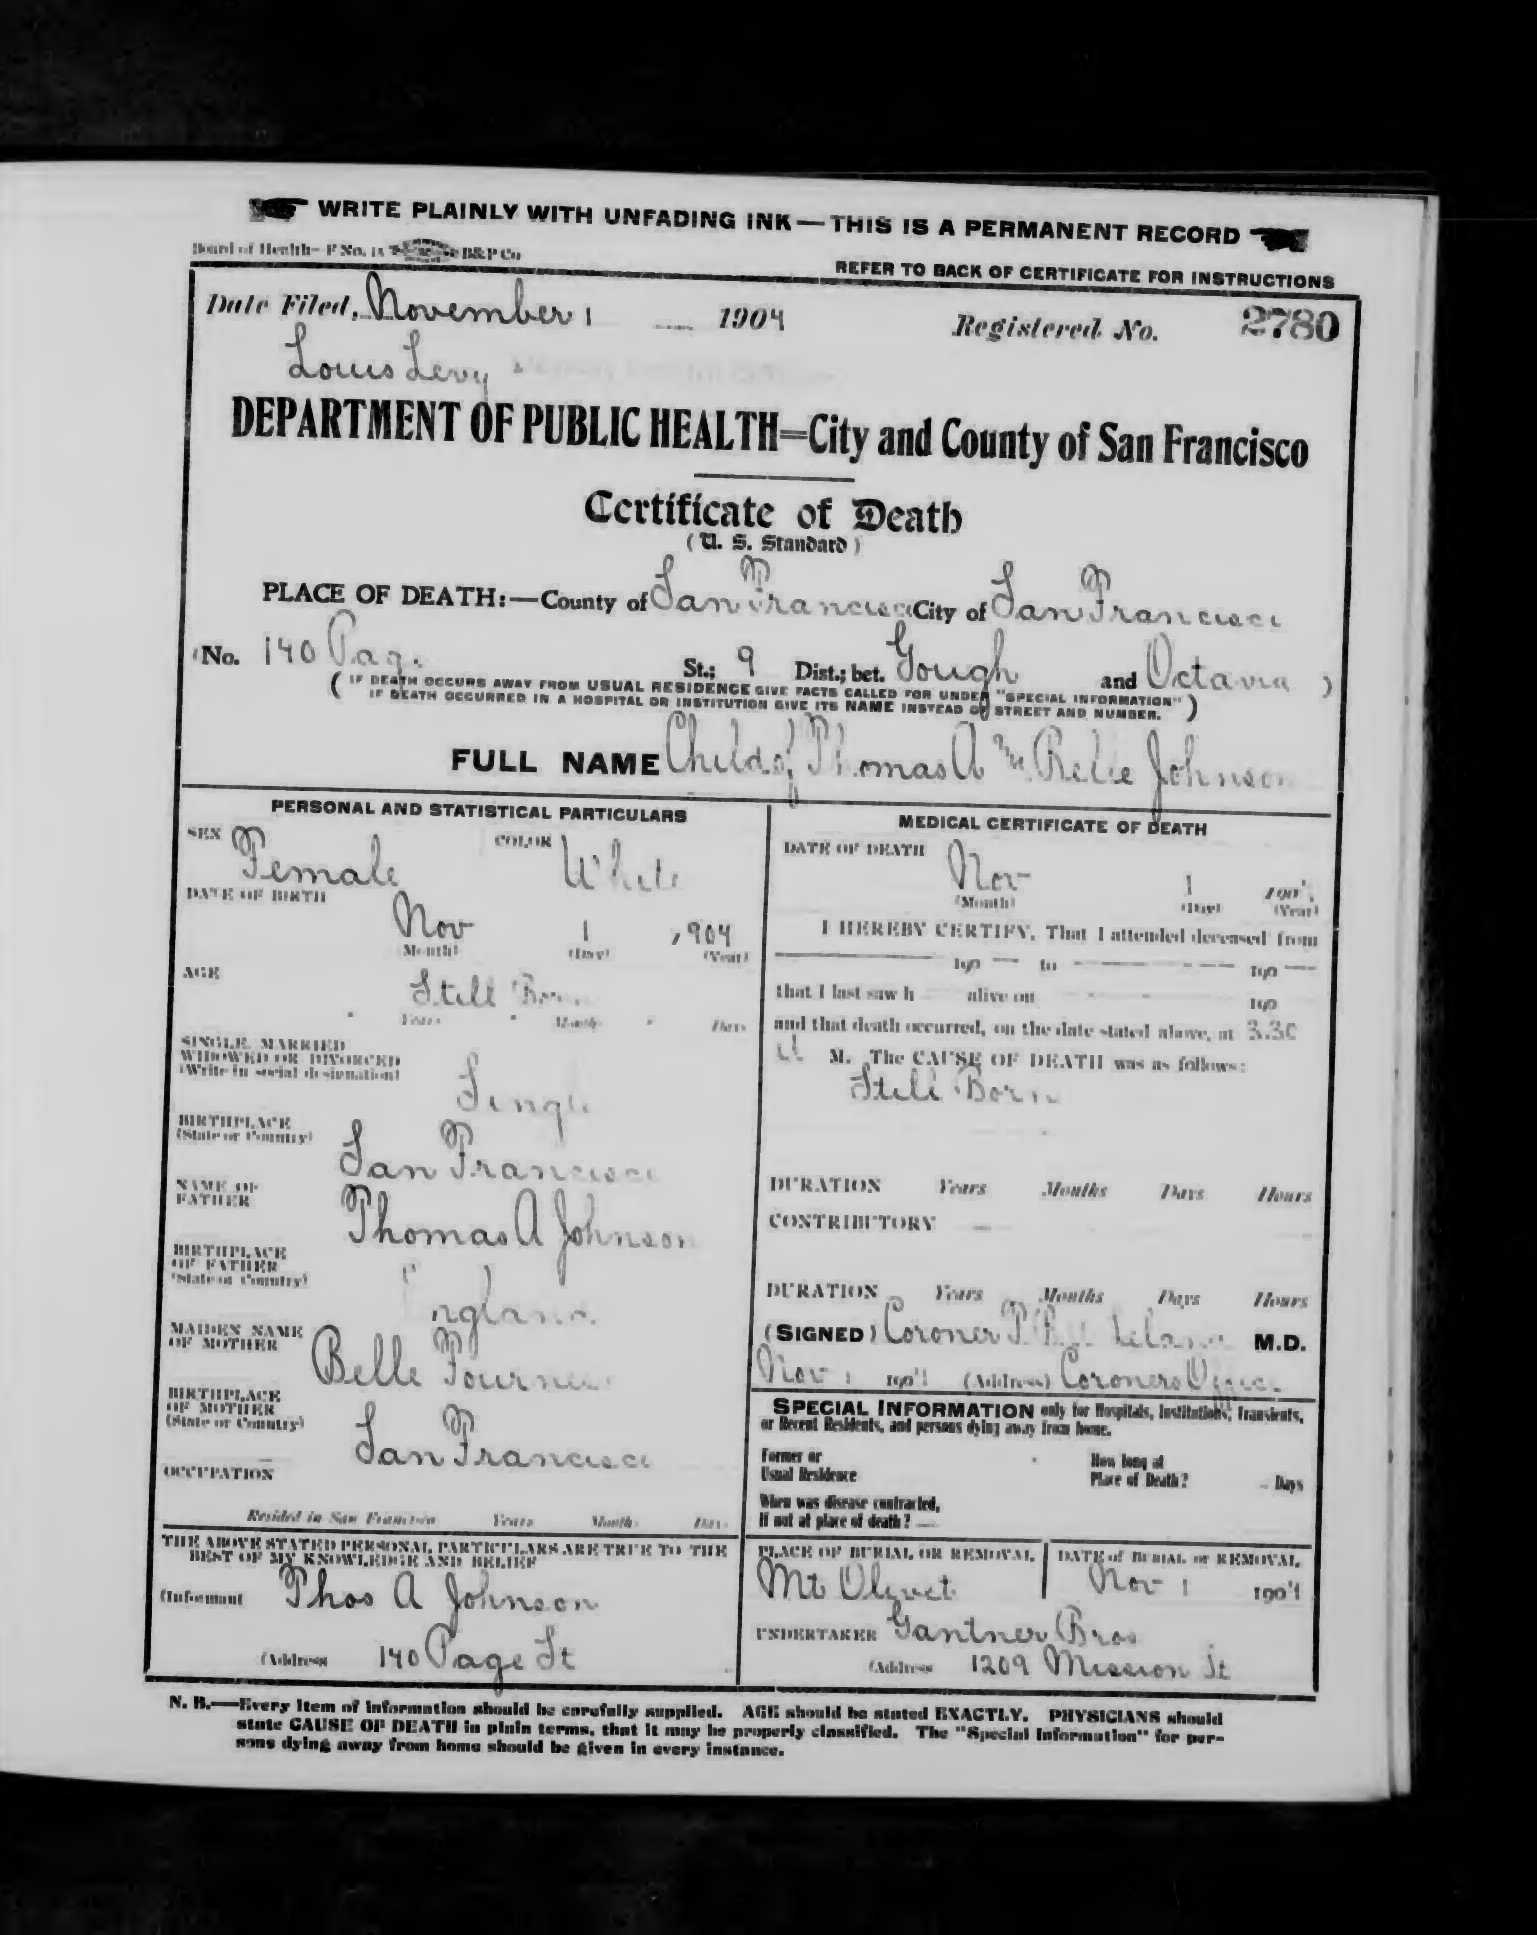 WRITE PLAINLY WITH UNFADING INK—THIS IS A PERMANENT RECORD
Board of Health—F No. B&P Co
REFER TO BACK OF CERTIFICATE FOR INSTRUCTIONS
Date Filed, November 1 1904 Registered No. 2780
Louis Levy
DEPARTMENT OF PUBLIC HEALTH=City and County of San Francisco
Certificate of Death
(U. S. Standard)
PLACE OF DEATH:—County of San Francisco City of San Francisco
(No. 140 Page St.; 9 Dist.; bet. Gough and Octavia )
( IF DEATH OCCURS AWAY FROM USUAL RESIDENCE GIVE FACTS CALLED FOR UNDER "SPECIAL INFORMATION"
IF DEATH OCCURRED IN A HOSPITAL OR INSTITUTION GIVE ITS NAME INSTEAD OF STREET AND NUMBER. )
FULL NAME Child of Thomas A Johnson
PERSONAL AND STATISTICAL PARTICULARS
SEX Female COLOR White
DATE OF BIRTH
Nov 1 , 904
(Month) (Day) (Year)
AGE
Still Born
Years Months Days
SINGLE, MARRIED
WIDOWED OR DIVORCED
(Write in social designation)
Single
BIRTHPLACE
(State or Country)
San Francisco
NAME OF
FATHER
Thomas A Johnson
BIRTHPLACE
OF FATHER
(State or Country)
England
MAIDEN NAME
OF MOTHER
Belle
BIRTHPLACE
OF MOTHER
(State or Country)
San Francisco
OCCUPATION
Resided in San Francisco Years Months Days
THE ABOVE STATED PERSONAL PARTICULARS ARE TRUE TO THE
BEST OF MY KNOWLEDGE AND BELIEF
(Informant Thos A Johnson
(Address 140 Page St
MEDICAL CERTIFICATE OF DEATH
DATE OF DEATH
Nov 1 190
(Month) (Day) (Year)
I HEREBY CERTIFY, That I attended deceased from
190 — to — 190 —
that I last saw h alive on 190
and that death occurred, on the date stated above, at 3.30
M. The CAUSE OF DEATH was as follows:
Still Born
DURATION Years Months Days Hours
CONTRIBUTORY —
DURATION Years Months Days Hours
(SIGNED) Coroner Leland M.D.
Nov 1 1904 (Address) Coroners Office
SPECIAL INFORMATION only for Hospitals, Institutions, Transients,
or Recent Residents, and persons dying away from home.
Former or
Usual Residence
How long at
Place of Death? Days
When was disease contracted,
If not at place of death? —
PLACE OF BURIAL OR REMOVAL
Mt Olivet
DATE of BURIAL or REMOVAL
Nov 1 1904
UNDERTAKER Gantner Bros
(Address 1209 Mission St
N. B.—Every item of information should be carefully supplied. AGE should be stated EXACTLY. PHYSICIANS should
state CAUSE OF DEATH in plain terms, that it may be properly classified. The "Special Information" for per-
sons dying away from home should be given in every instance.